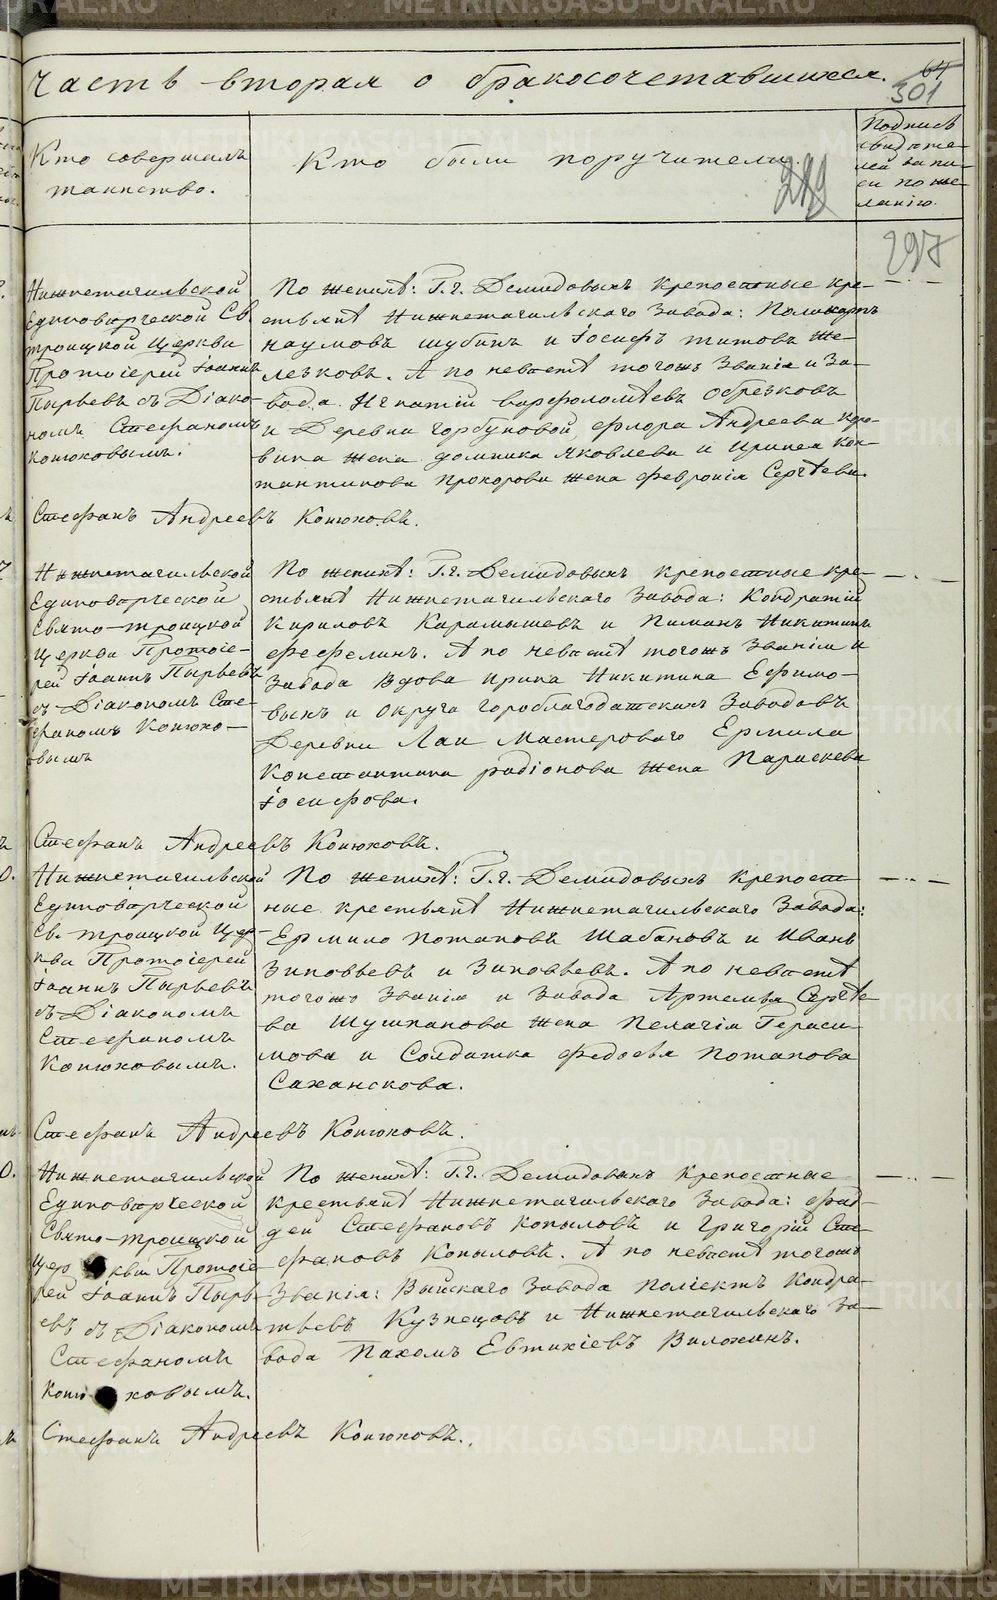 Часть вторая о бракосочетавшихся.
64
301
Кто совершалъ
таинство.
Кто были поручители.
Подпись
свидете-
лей запи-
си по же-
ланію.
299
297
Нижнетагильской
Единоверческой Св.
троицкой Церкви
Протоіерей Іоаннъ
Пырьевъ съ Діако-
номъ Стефаномъ
Конюковымъ.
По женихѣ: Г.г. Демидовыхъ крепостные кре-
стьянѣ Нижнетагильскаго Завода: Поликарпъ
наумовъ шубинъ и Іосифъ титовъ Же-
лезковъ. А по невестѣ тогожъ Званія и За-
вода Игнатій варфоломѣевъ Обрезковъ
и Деревни горбуновой, флора Андреева Коро-
вина жена домника Яковлева и Иринея Кон-
тантинова прохорова жена феврония Сергѣева.
Стефанъ Андреевъ Конюковъ.
Нижнетагильской
Единоверческой
Свято-троицкой
Церкви Протоіе-
рей Іоаннъ Пырьевъ
съ Діакономъ Сте-
фаномъ Конюко-
вымъ
По женихѣ: Г.г. Демидовыхъ крепостные кре-
стьянѣ Нижнетагильскаго Завода: Кондратій
Кириловъ Карамышевъ и Пиманъ Никитинъ
фефелинъ. А по невестѣ тогожъ Званія и
Завода Вдова ирина Никитина Ефимо-
выхъ и округа гороблагодатскихъ Заводовъ
Деревни Лаи Мастероваго Ермила
Константина радіонова жена Параскева
Іосифова.
Стефанъ Андреевъ Конюковъ.
Нижнетагильской
Единоверческой
Св. троицкой Цер-
кви Протоіерей
Іоаннъ Пырьевъ
съ Діакономъ
Стефаномъ
Конюковымъ.
По женихѣ: Г.г. Демидовыхъ крепост-
ные крестьянѣ Нижнетагильскаго Завода:
Ермило потаповъ Шабановъ и Иванъ
Зиновьевъ и Зиновьевъ. А по невестѣ
тогожъ Званія и Завода Артемья Сергѣе-
ва Шушпанова жена пелагія Гераси-
мова и Солдатка федосья потапова
Саханскова.
Стефанъ Андреевъ Конюковъ.
Нижнетагильской
Единоверческой
Свято-троицкой
Церкви Протоіе-
рей Іоаннъ Пырь-
евъ съ Діакономъ
Стефаномъ
Коню ковымъ.
По женихѣ: Г.г. Демидовыхъ крепостные
крестьянѣ Нижнетагильскаго Завода: фад-
дей Стефановъ копыловъ и григорій Сте-
фановъ Копыловъ. А по невестѣ тогожъ
Званія: Выйскаго Завода поліектъ Кондра-
тьевъ Кузнецовъ и Нижнетагильскаго За-
вода Пахомъ Евтихіевъ Виложинъ.
Стефанъ Андреевъ Конюковъ.
METRIKI.GASO-URAL.RU